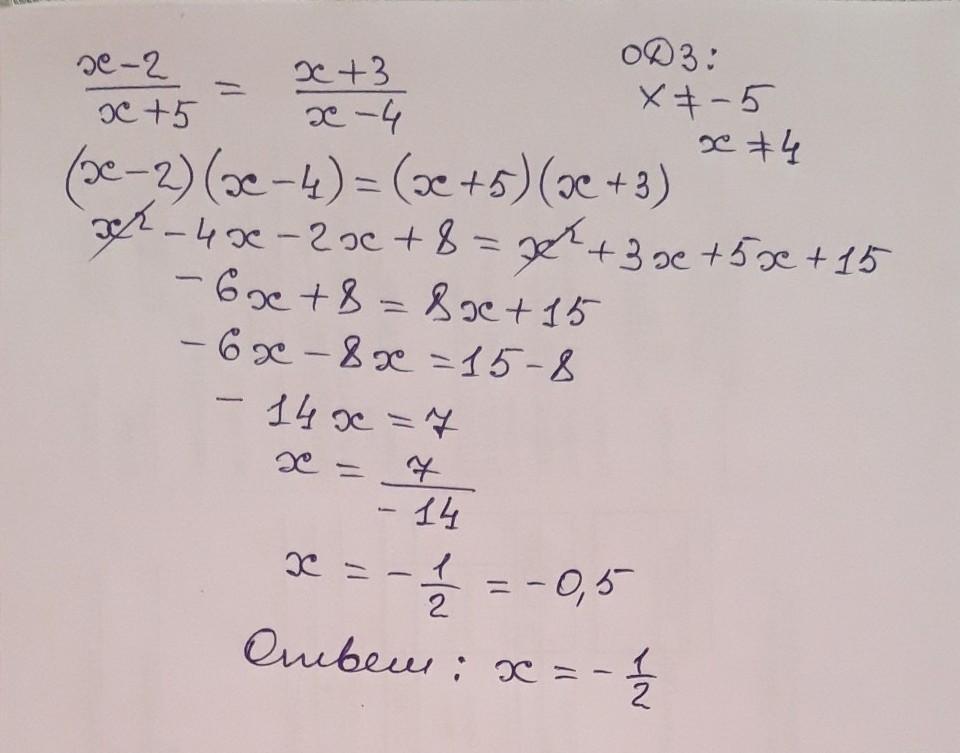 x-2/x+5 = x+3/x-4
ОДЗ:
x ≠ -5
x ≠ 4
(x-2)(x-4)=(x+5)(x+3)
x²-4x-2x+8=x²+3x+5x+15
-6x+8=8x+15
-6x-8x=15-8
-14x=7
x=7/-14
x=-1/2=-0,5
Ответ: x=-1/2